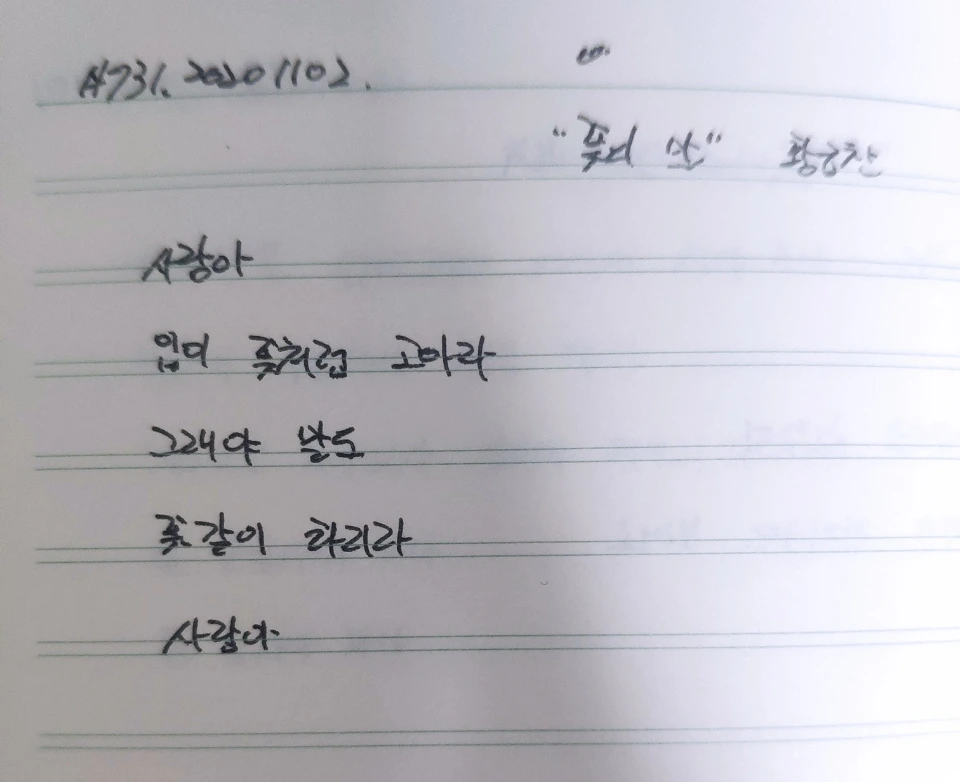 #731. 20201102.
"꽃의 말" 황금찬
사랑아
입이 꽃처럼 고아라
그래야 말도
꽃같이 하리라
사람아